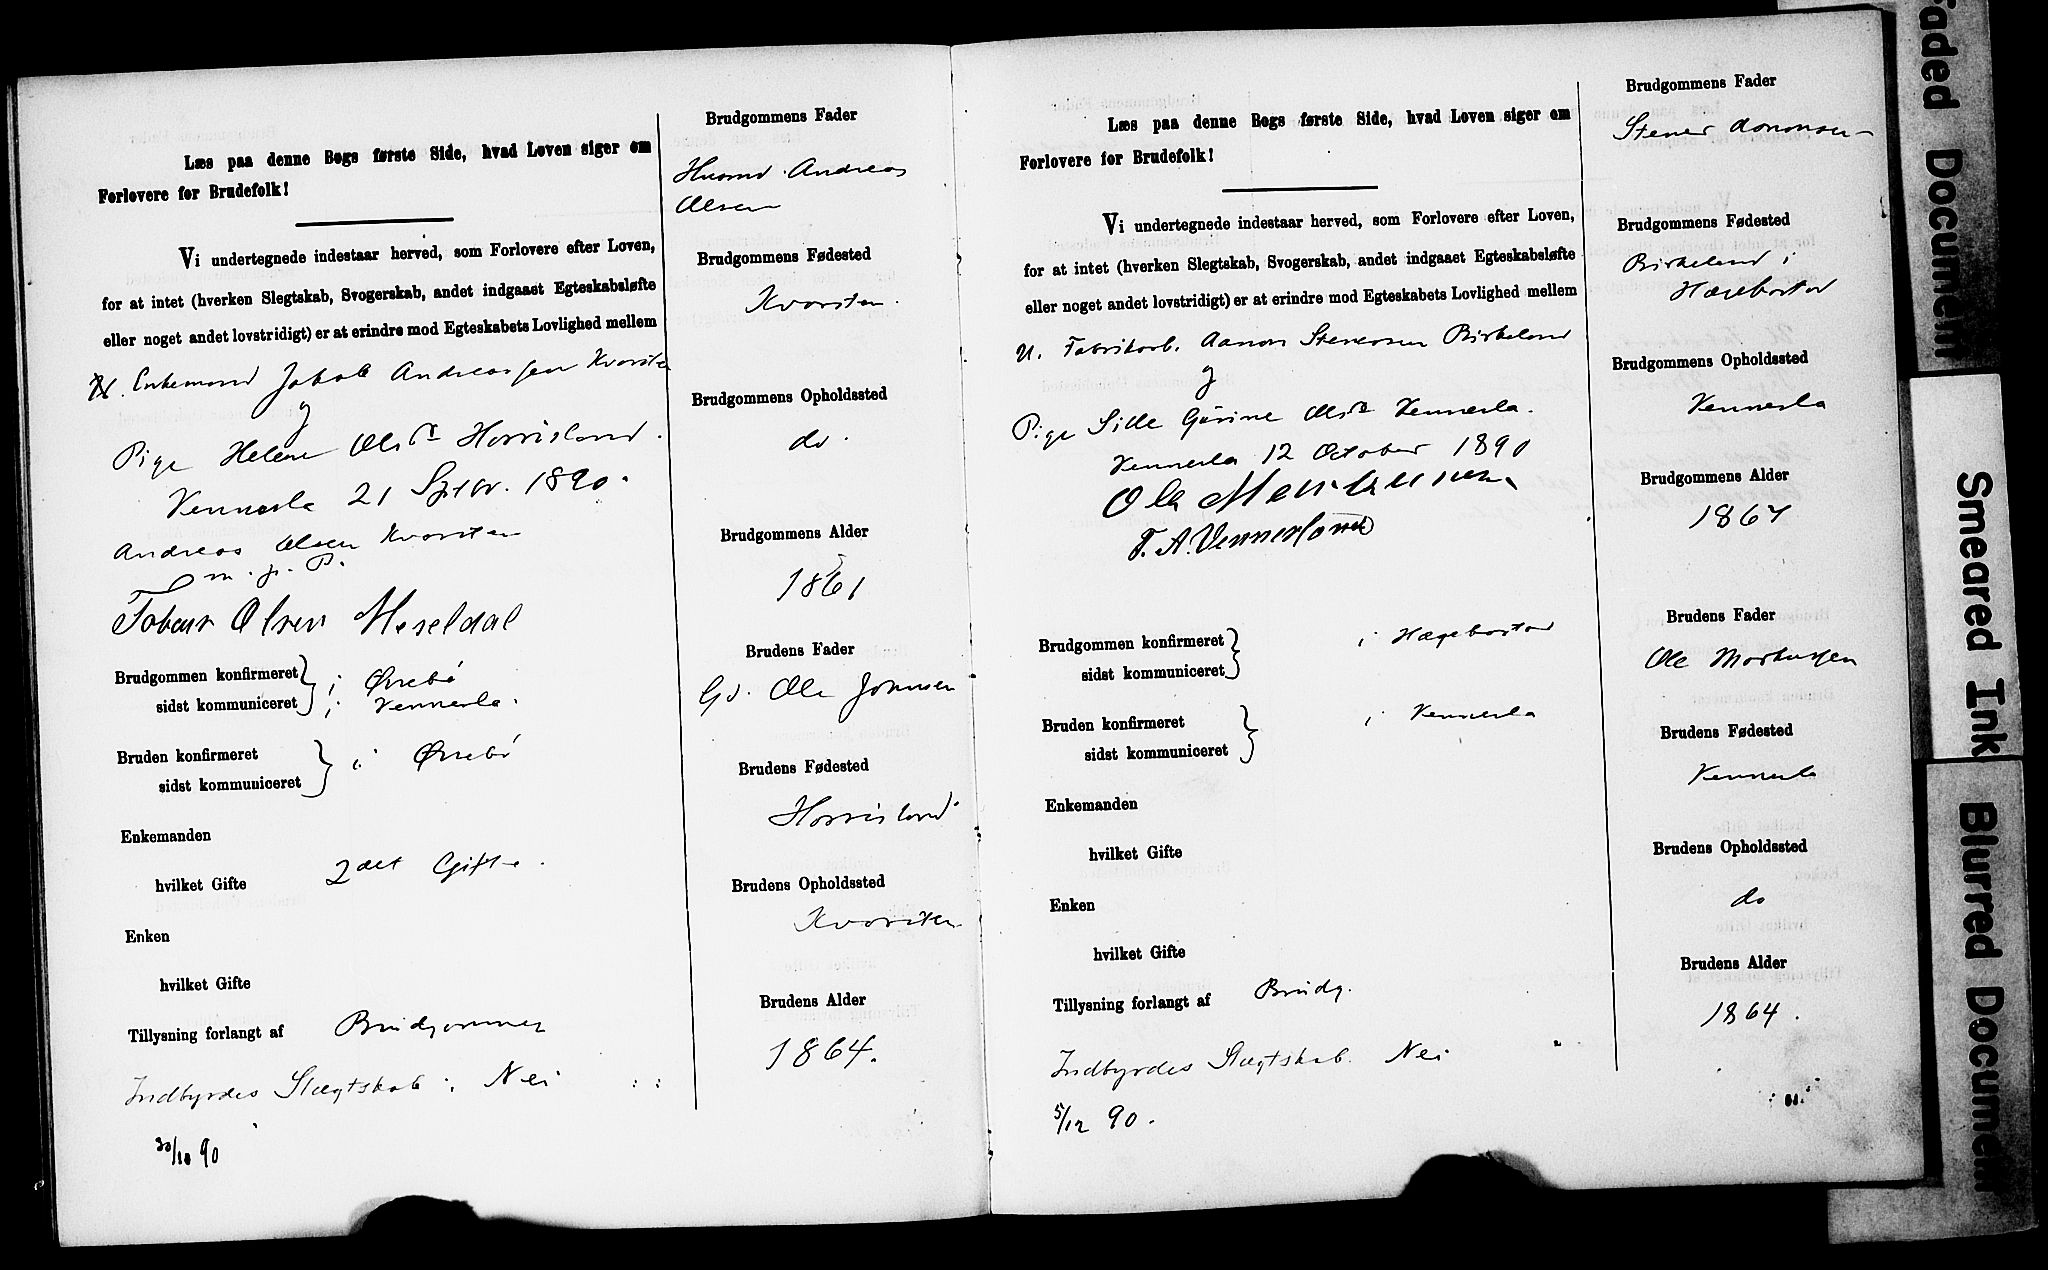 Læs paa denne Bogs første Side, hvad Loven siger om
Forlovere for Brudefolk!
Vi undertegnede indestaar herved, som Forlovere efter Loven,
for at intet (hverken Slegtskab, Svogerskab, andet indgaaet Egteskabsløfte
eller noget andet lovstridigt) er at erindre mod Egteskabets Lovlighed mellem
Enkemand Jakob Andreassen Kvarsten
og
Pige Helene Olsdr Harrisland.
Vennesla 21 Septbr. 1890.
Andreas Olsen Kvarsten
m. p. P.
Tobias Olsen Meseldal
Brudgommen konfirmeret
sidst kommuniceret
i Øvrebø
i Vennesla.
Bruden konfirmeret
sidst kommuniceret
i Øvrebø
Enkemanden
hvilket Gifte 2det Gifte.
Enken
hvilket Gifte
Tillysning forlangt af Brudgommen
Indbyrdes Slægtskab: Nei
30/10 90
Brudgommens Fader
Husmd. Andreas
Olsen
Brudgommens Fødested
Kvarsten.
Brudgommens Opholdssted
do.
Brudgommens Alder
1861
Brudens Fader
Gd. Ole Johnsen
Brudens Fødested
Harrisland
Brudens Opholdssted
Kvarsten
Brudens Alder
1864.
Læs paa denne Bogs første Side, hvad Loven siger om
Forlovere for Brudefolk!
Vi undertegnede indestaar herved, som Forlovere efter Loven,
for at intet (hverken Slegtskab, Svogerskab, andet indgaaet Egteskabsløfte
eller noget andet lovstridigt) er at erindre mod Egteskabets Lovlighed mellem
U. Fabrikarb. Aanon Stenersen Birkeland
og
Pige Sille Gurine Olsdr Vennesla.
Vennesla 12 October 1890
Ola
T. A. Vennesland
Brudgommen konfirmeret
sidst kommuniceret
i Hægebostad
Bruden konfirmeret
sidst kommuniceret
i Vennesla
Enkemanden
hvilket Gifte
Enken
hvilket Gifte
Tillysning forlangt af Brudg.
Indbyrdes Slægtskab. Nei
5/12 90.
Brudgommens Fader
Stener Aanonsen
Brudgommens Fødested
Birkeland i
Hægebostad
Brudgommens Opholdssted
Vennesla
Brudgommens Alder
1867
Brudens Fader
Ole Markussen
Brudens Fødested
Vennesla
Brudens Opholdssted
do
Brudens Alder
1864.
Faded Document
Smeared Ink
Blurred Document